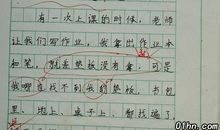 有一次上课的时候，老师
让我们写作业，我拿出作业本
和笔，就垫板没有拿，可是
我哪里找不到我的垫板，书包
里、地上、桌子上，都找遍了
01hn.com